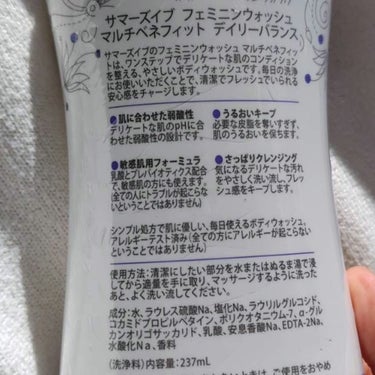 サマーズイブ フェミニンウォッシュ
マルチベネフィット デイリーバランス
サマーズイブのフェミニンウォッシュ マルチベネフィッ
トは、ワンステップでデリケートな肌のコンディション
を整える、やさしいボディウォッシュです。毎日の洗浄
にお使いいただくことで、清潔でフレッシュでいられる
安心感をチャージします。
●肌に合わせた弱酸性
デリケートな肌のpHに合
わせた弱酸性の設計です。
●うるおいキープ
必要な皮脂を奪いすぎず、
肌のうるおいを保ちます。
●敏感肌用フォーミュラ
乳酸とプレバイオティクス配合
で、敏感肌の方にも使えます。
(全ての人にトラブルが起こらな
いということではありません)
●さっぱりクレンジング
気になるデリケートな汚れ
をやさしく洗い流し、フレッ
シュ感をキープします。
シンプル処方で肌に優しい、毎日使えるボディウォッシュ。
アレルギーテスト済み(全ての方にアレルギーが起こらない
ということではありません)
使用方法:清潔にしたい部分を水またはぬるま湯で浸
してから適量を手に取り、マッサージするように洗った
あと、よく洗い流してください。
成分:水、ラウレス硫酸Na、塩化Na、ラウリルグルコシド、
コカミドプロピルベタイン、ポリクオタニウム-7、α-グル
カンオリゴサッカリド、乳酸、安息香酸Na、EDTA-2Na、
水酸化Na、香料
(洗浄料)内容量:237mL